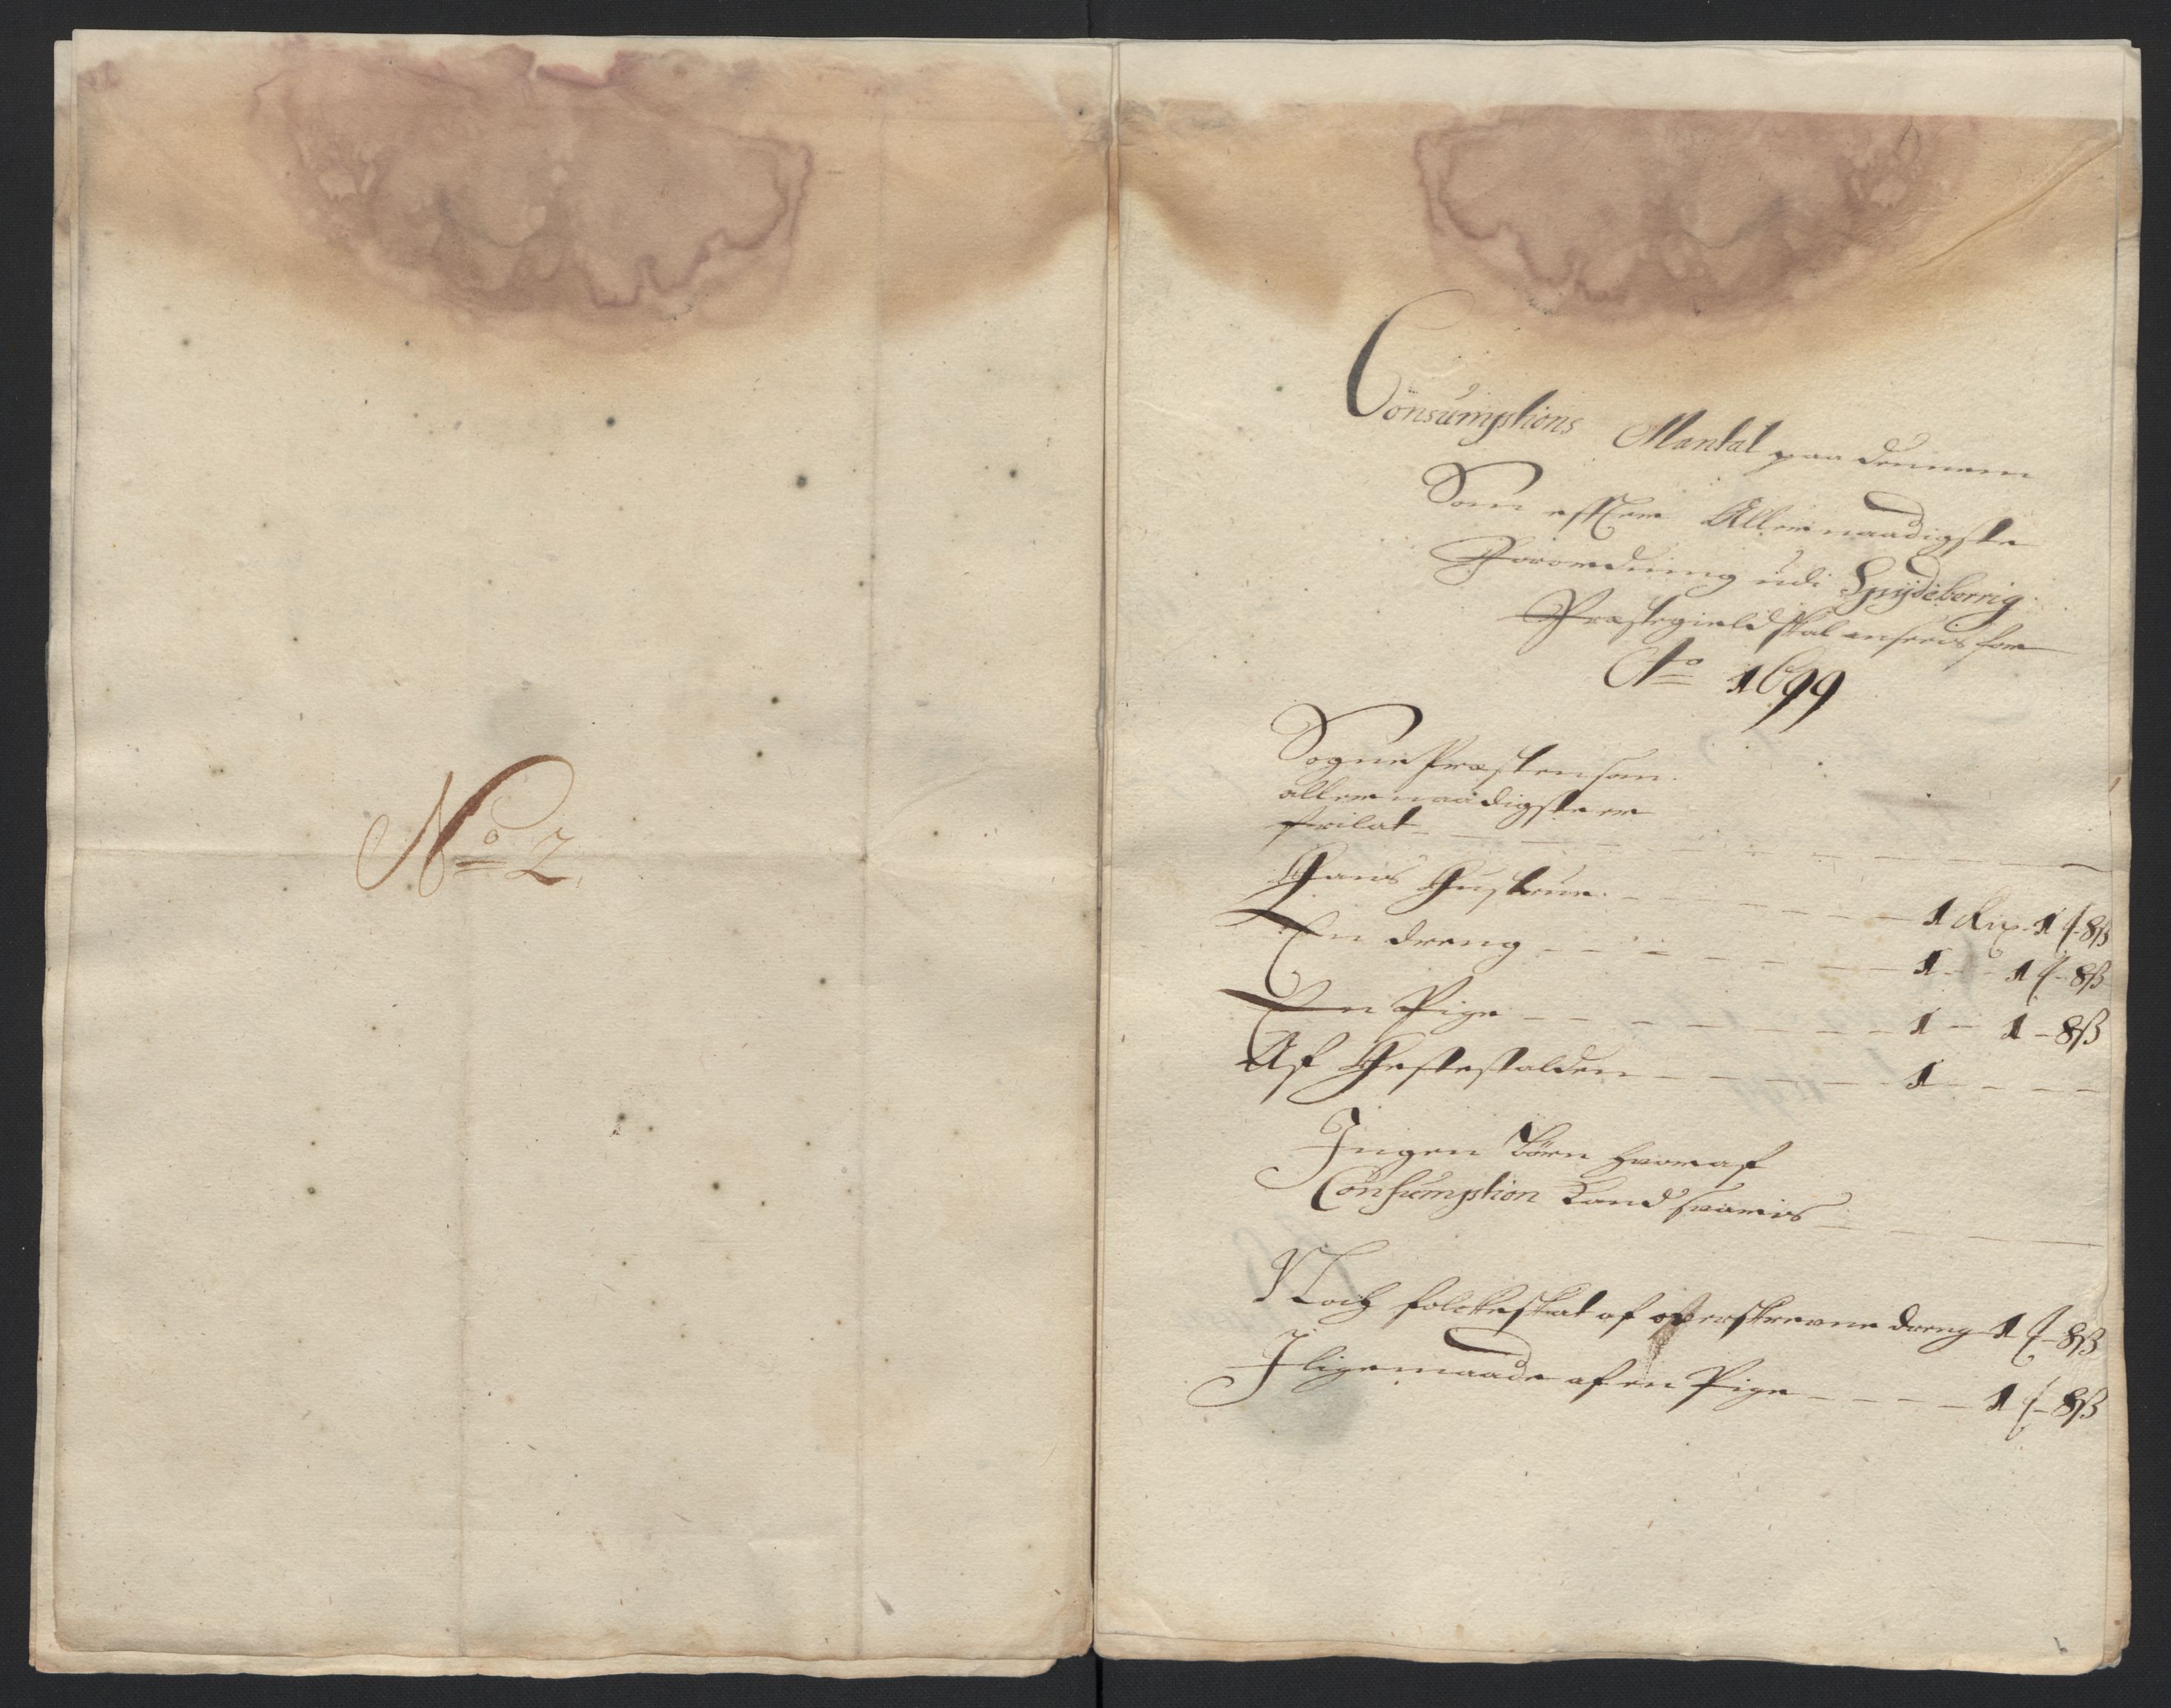 No 2
Consumptions Mantal paa dennem
Som efter Allernaadigste
Forordning udi Spydeberrig
Præstegield skal ansees for
Ao 1699
Sogne Præsten som
allernaadigst er
frilat
Hans Hustrue 1 Rix 1 ʃ 8 ß
En dreng 1 - 1 ʃ - 8 ß
En Pige 1 - 1 - 8 ß
Af Hestestalden 1
Ingen Børn hvoraf
Consumption kand svaris
Noch folcheskat af ofverskrevne dreng 1 ʃ - 8 ß
I ligemaade af en Pige 1 ʃ - 8 ß